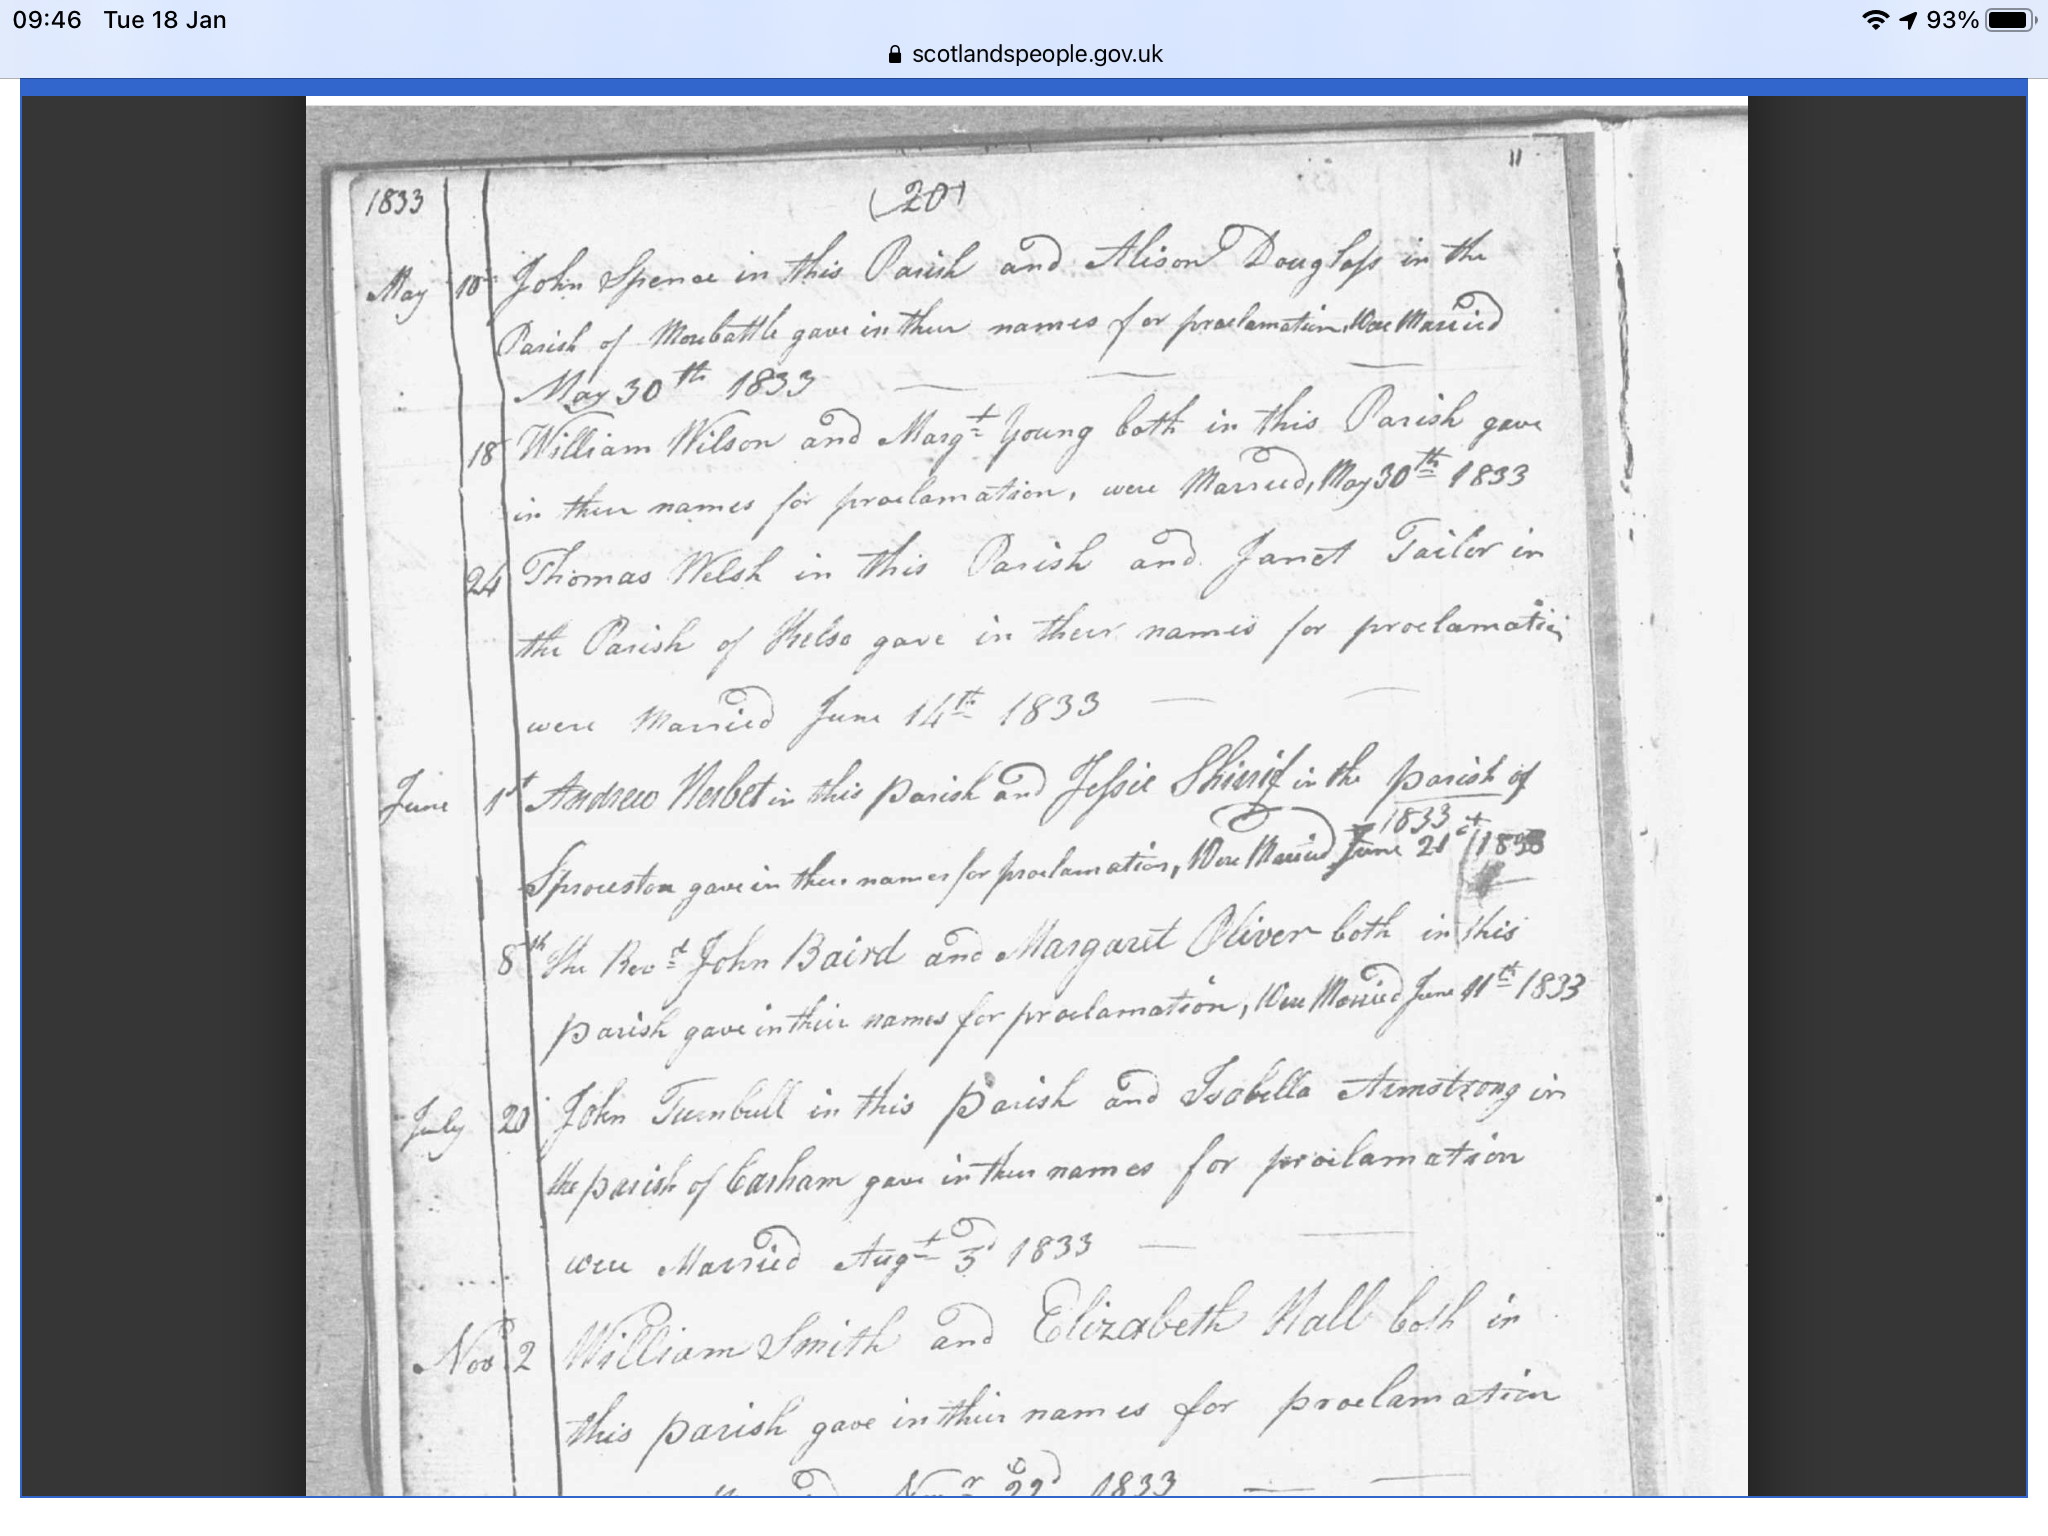 09:46 Tue 18 Jan
93%
scotlandspeople.gov.uk
11
1833 (20)
May 18 John Spence in this Parish and Alison Douglass in the
Parish of Morebattle gave in their names for proclamation, Were Married
May 30th 1833
18 William Wilson and Margt Young both in this Parish gave
in their names for proclamation, were Married, May 30th 1833
24 Thomas Welsh in this Parish and Janet Tailor in
the Parish of Kelso gave in their names for proclamation
were Married June 14th 1833
June 1st Andrew Nesbet in this parish and Jessie Shirrif in the parish of
1833
Sprouston gave in their names for proclamation, Were Married June 21st 1833
8th The Revd John Baird and Margaret Oliver both in this
parish gave in their names for proclamation, Were Married June 11th 1833
July 20 John Turnbull in this parish and Isabella Armstrong in
the parish of Carham gave in their names for proclamation
were Married Augt 3d 1833
Nov 2 William Smith and Elizabeth Hall both in
this parish gave in their names for proclamation
Novr 22d 1833